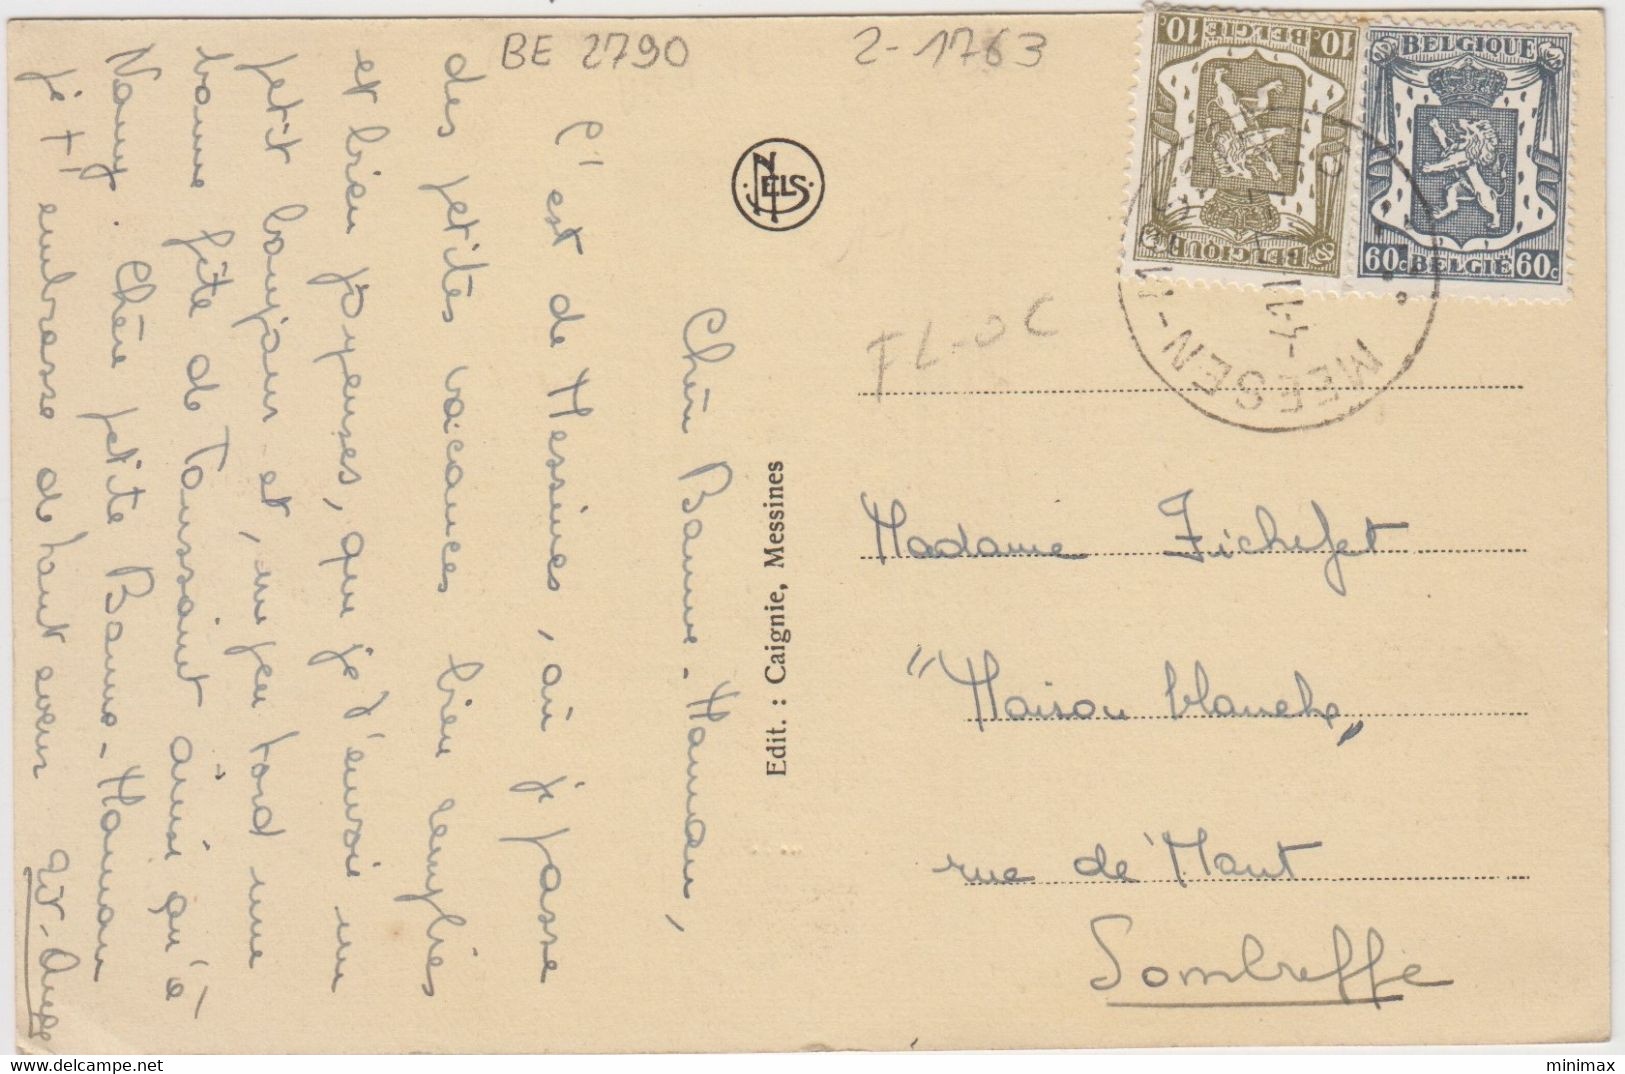 BE 2790
2-1763
Chère Bonne-Maman,
C'est de Messines, où je passe
des petites vacances bien remplies
et bien joyeuses, que je t'envoie un
petit bonjour et, un peu tard une
bonne fête de Toussaint ainsi qu'à
Nany. Chère petite Bonne-Maman
je t'embrasse de tout cœur
NELS
Edit. : Caignie, Messines
10c BELGIE 10c
BELGIQUE
BELGIQUE
60c BELGIE 60c
MEESEN-M
FL-OC
Madame Fichefet
"Maison blanche"
rue de
Sombreffe
www.delcampe.net
minimax